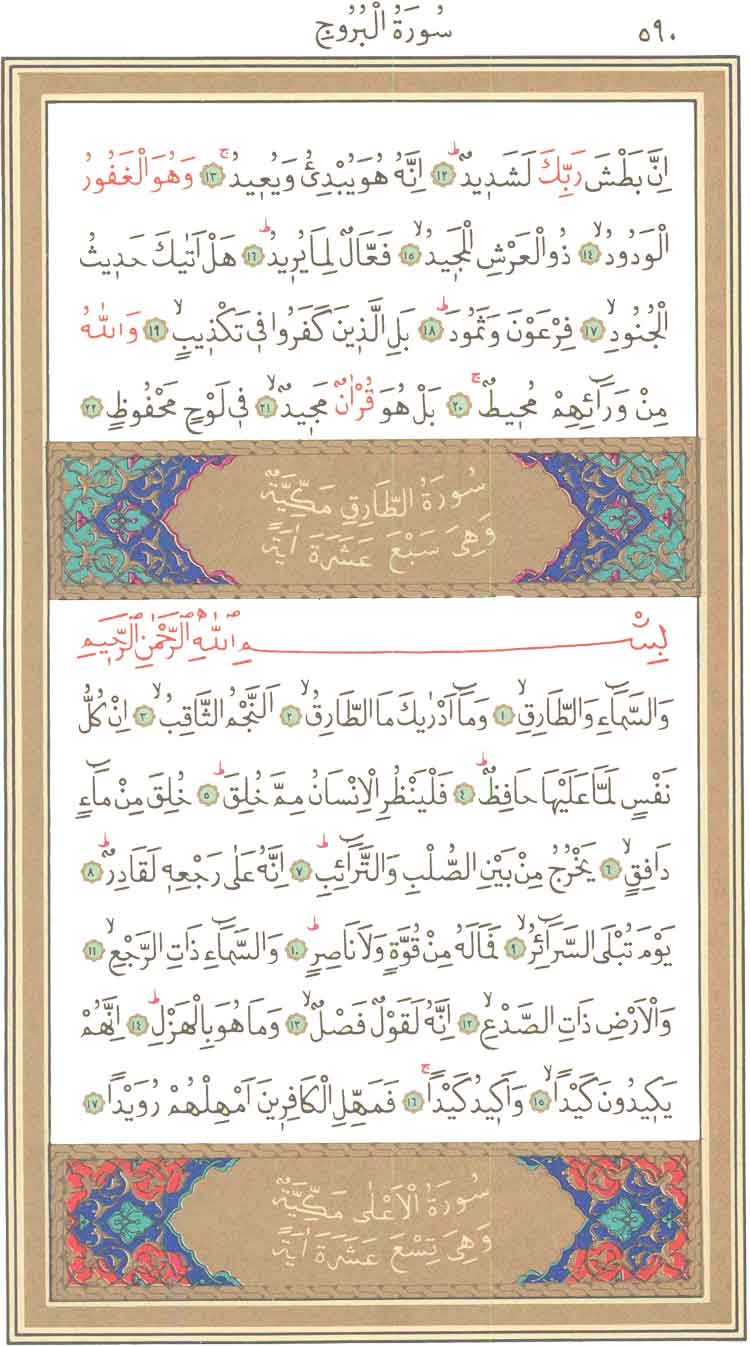 سُورَةُ الْبُرُوجِ ٥٩٠
اِنَّ بَطْشَ رَبِّكَ لَشَد۪يدٌۜ ١٢ اِنَّهُ هُوَ يُبْدِئُ وَيُع۪يدُۚ ١٣ وَهُوَ الْغَفُورُ
الْوَدُودُۙ ١٤ ذُو الْعَرْشِ الْمَج۪يدُۙ ١٥ فَعَّالٌ لِمَا يُر۪يدُۜ ١٦ هَلْ اَتٰيكَ حَد۪يثُ
الْجُنُودِۙ ١٧ فِرْعَوْنَ وَثَمُودَۜ ١٨ بَلِ الَّذ۪ينَ كَفَرُوا ف۪ي تَكْذ۪يبٍۙ ١٩ وَاللّٰهُ
مِنْ وَرَٓائِهِمْ مُح۪يطٌۚ ٢٠ بَلْ هُوَ قُرْاٰنٌ مَج۪يدٌۙ ٢١ ف۪ي لَوْحٍ مَحْفُوظٍ ٢٢
سُورَةُ الطَّارِقِ مَكِّيَّةٌ
وَهِيَ سَبْعَ عَشَرَةَ اٰيَةً
بِسْمِ اللّٰهِ الرَّحْمٰنِ الرَّح۪يمِ
وَالسَّمَٓاءِ وَالطَّارِقِۙ ١ وَمَٓا اَدْرٰيكَ مَا الطَّارِقُۙ ٢ اَلنَّجْمُ الثَّاقِبُۙ ٣ اِنْ كُلُّ
نَفْسٍ لَمَّا عَلَيْهَا حَافِظٌۜ ٤ فَلْيَنْظُرِ الْاِنْسَانُ مِمَّ خُلِقَۜ ٥ خُلِقَ مِنْ مَٓاءٍ
دَافِقٍۙ ٦ يَخْرُجُ مِنْ بَيْنِ الصُّلْبِ وَالتَّرَٓائِبِۜ ٧ اِنَّهُ عَلٰى رَجْعِه۪ لَقَادِرٌۜ ٨
يَوْمَ تُبْلَى السَّرَٓائِرُۙ ٩ فَمَا لَهُ مِنْ قُوَّةٍ وَلَا نَاصِرٍۜ ١٠ وَالسَّمَٓاءِ ذَاتِ الرَّجْعِۙ ١١
وَالْاَرْضِ ذَاتِ الصَّدْعِۙ ١٢ اِنَّهُ لَقَوْلٌ فَصْلٌۙ ١٣ وَمَا هُوَ بِالْهَزْلِۜ ١٤ اِنَّهُمْ
يَك۪يدُونَ كَيْدًاۙ ١٥ وَاَك۪يدُ كَيْدًاۚ ١٦ فَمَهِّلِ الْكَافِر۪ينَ اَمْهِلْهُمْ رُوَيْدًا ١٧
سُورَةُ الْاَعْلٰى مَكِّيَّةٌ
وَهِيَ تِسْعَ عَشَرَةَ اٰيَةً